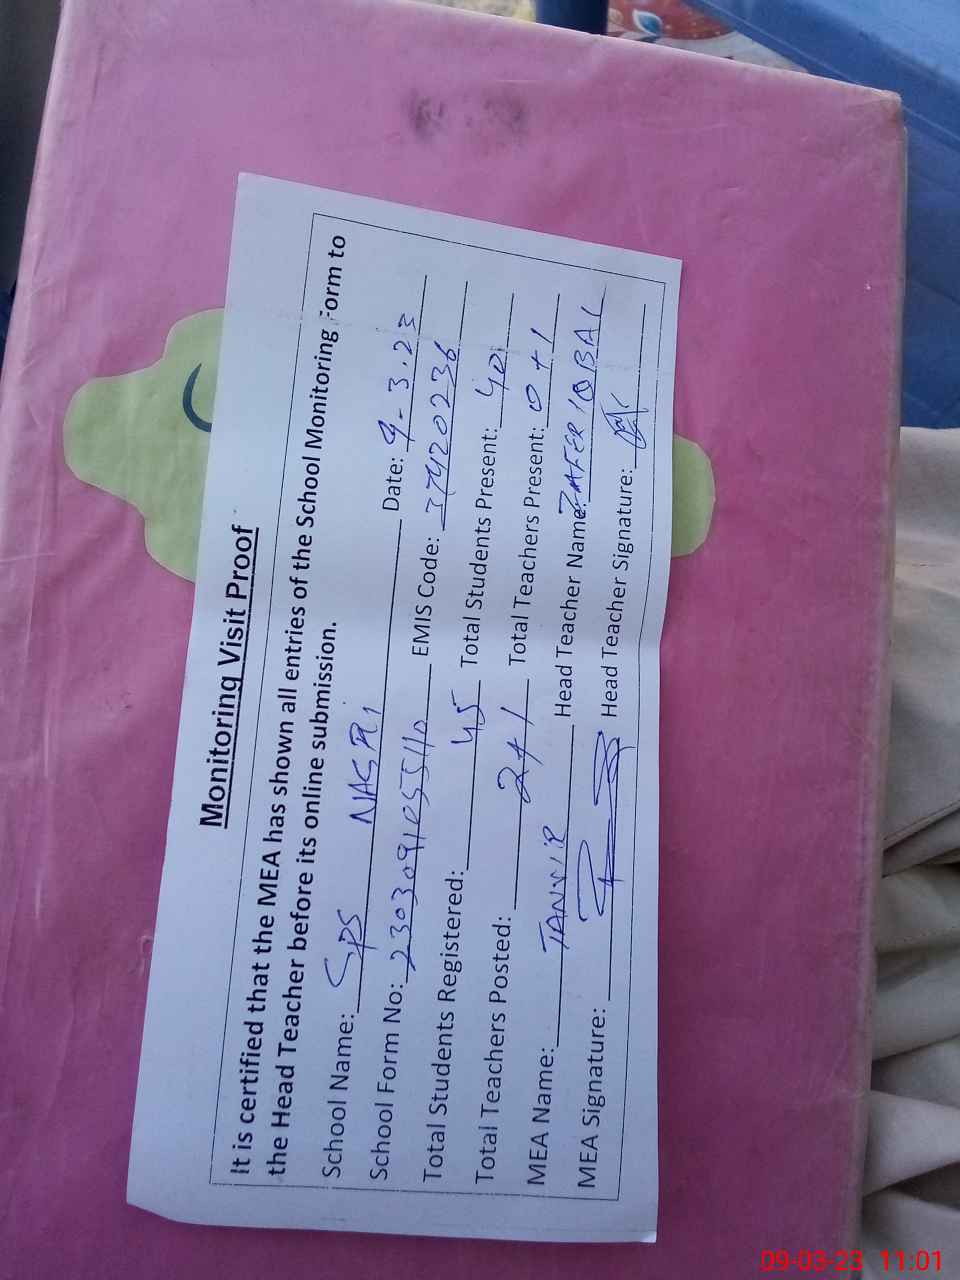 Monitoring Visit Proof
It is certified that the MEA has shown all entries of the School Monitoring Form to
the Head Teacher before its online submission.
School Name: GPS NASRI Date: 9-3.23
School Form No: 2303091055110 EMIS Code: 37420236
Total Students Registered: 45 Total Students Present: 40
Total Teachers Posted: 2+1 Total Teachers Present: 0+1
MEA Name: TANVIR Head Teacher Name: ZAFER IQBAL
MEA Signature: Head Teacher Signature:
09-03-23 11:01